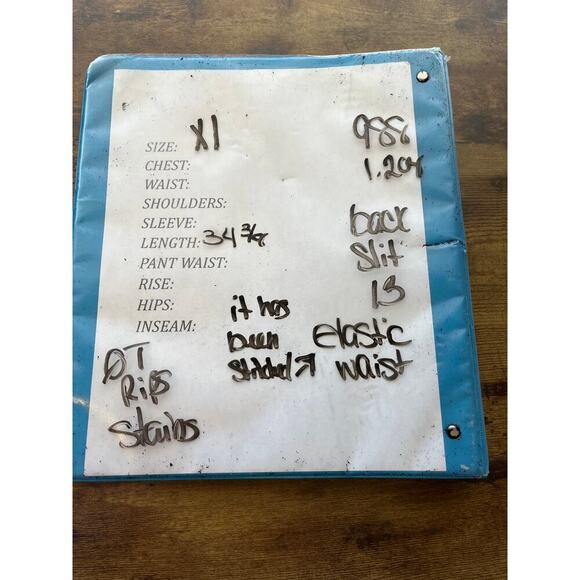 SIZE: Xl
988
CHEST:
1.2oz
WAIST:
SHOULDERS:
SLEEVE:
back
LENGTH: 34 3/8
Slit
PANT WAIST:
13
RISE:
HIPS:
it has
been
elastic
waist
INSEAM:
Rips